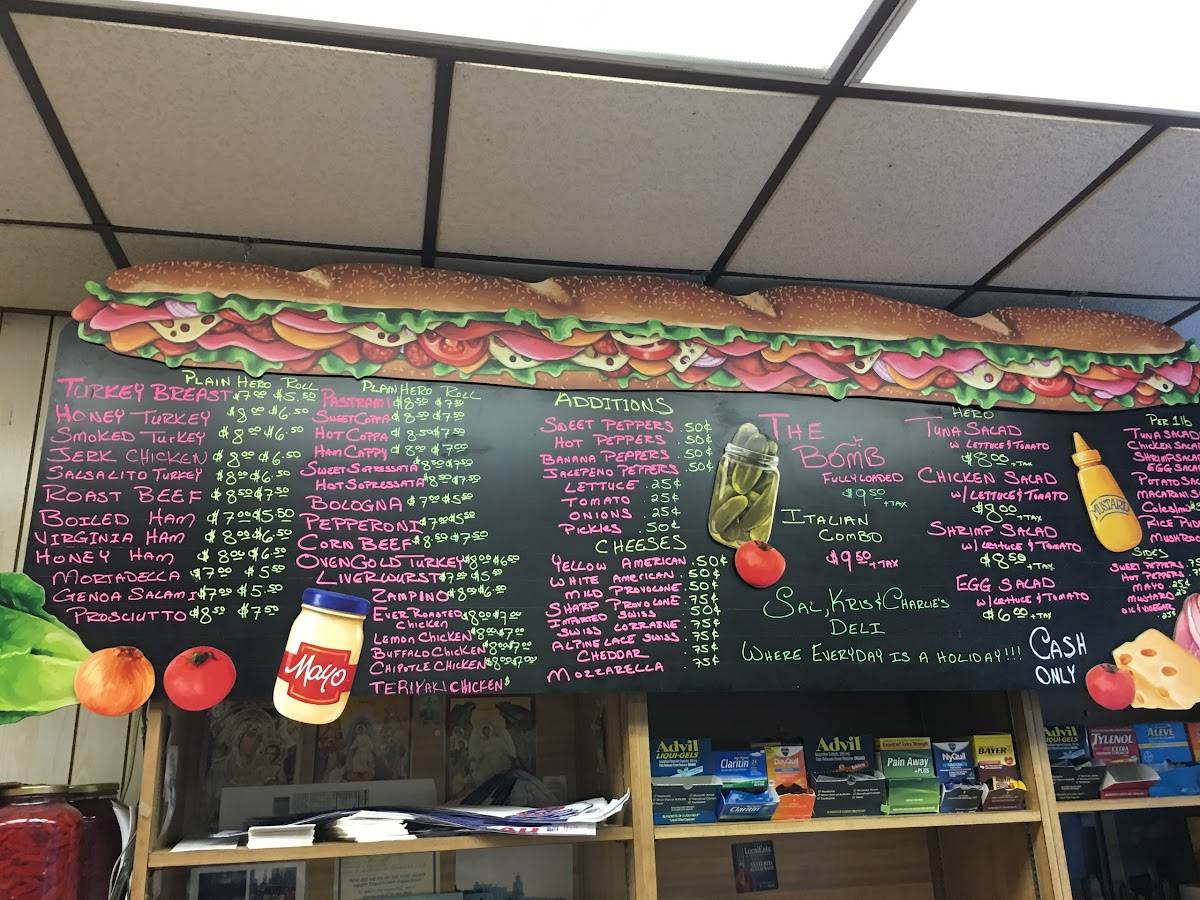 PLAIN HERO ROLL
TURKEY BREAST $7.00 $5.50
HONEY TURKEY $8.00 $6.50
SMOKED TURKEY $8.00 $6.50
JERK CHICKEN $8.00 $6.50
SALSALITO TURKEY $8.00 $6.50
ROAST BEEF $8.50 $7.50
BOILED HAM $7.00 $5.50
VIRGINIA HAM $8.00 $6.50
HONEY HAM $8.00 $6.50
MORTADELLA $7.00 $5.50
GENOA SALAMI $7.00 $5.50
PROSCIUTTO $8.50 $7.50
PLAIN HERO ROLL
PASTRAMI $8.50 $7.50
SWEET COPPA $8.50 $7.50
HOT COPPA $8.50 $7.50
HAM CAPPY $8.00 $7.00
SWEET SOPRESSATA $8.50 $7.50
HOT SOPRESSATA $8.50 $7.50
BOLOGNA $7.00 $5.50
PEPPERONI $7.00 $5.50
CORN BEEF $8.50 $7.50
OVENGOLD TURKEY $8.00 $6.50
LIVERWURST $7.00 $5.50
ZAMPINO $8.00 $6.50
EVER ROASTED CHICKEN $8.00 $7.00
LEMON CHICKEN $8.00 $7.00
BUFFALO CHICKEN $8.00 $7.00
CHIPOTLE CHICKEN $8.00 $7.00
TERIYAKI CHICKEN $
MAYO
ADDITIONS
SWEET PEPPERS .50¢
HOT PEPPERS .50¢
BANANA PEPPERS .50¢
JALEPENO PEPPERS .50¢
LETTUCE .25¢
TOMATO .25¢
ONIONS .25¢
PICKLES .50¢
CHEESES
YELLOW AMERICAN .50¢
WHITE AMERICAN .50¢
MILD PROVOLONE .50¢
SHARP PROVOLONE .75¢
IMPORTED SWISS .50¢
SWISS LORRAINE .75¢
ALPINE LACE SWISS .75¢
CHEDDAR .75¢
MOZZARELLA .75¢
THE BOMB
FULLY LOADED
$9.50 +TAX
ITALIAN COMBO
$9.50 +TAX
SAL, KRIS & CHARLIE'S
DELI
WHERE EVERYDAY IS A HOLIDAY!!!
HERO
TUNA SALAD
W/ LETTUCE & TOMATO
$8.00 +TAX
CHICKEN SALAD
W/ LETTUCE & TOMATO
$8.00 +TAX
SHRIMP SALAD
W/ LETTUCE & TOMATO
$8.50 +TAX
EGG SALAD
W/ LETTUCE & TOMATO
$6.00 +TAX
CASH
ONLY
MUSTARD
PER 1 lb
TUNA SALAD
CHICKEN SALAD
SHRIMP SALAD
EGG SALAD
POTATO SALAD
MACARONI
COLESLAW
RICE
MUSHROOM
SIDES
SWEET PEPPERS
HOT PEPPERS
MAYO .25¢
MUSTARD
OIL & VINEGAR
.25¢
Advil
LIQUI-GELS
Claritin
DayQuil
Advil
LIQUI-GELS
Pain Away
+PLUS
NyQuil
BAYER
Advil
LIQUI-GELS
TYLENOL
ALEVE
Claritin
LocalEats